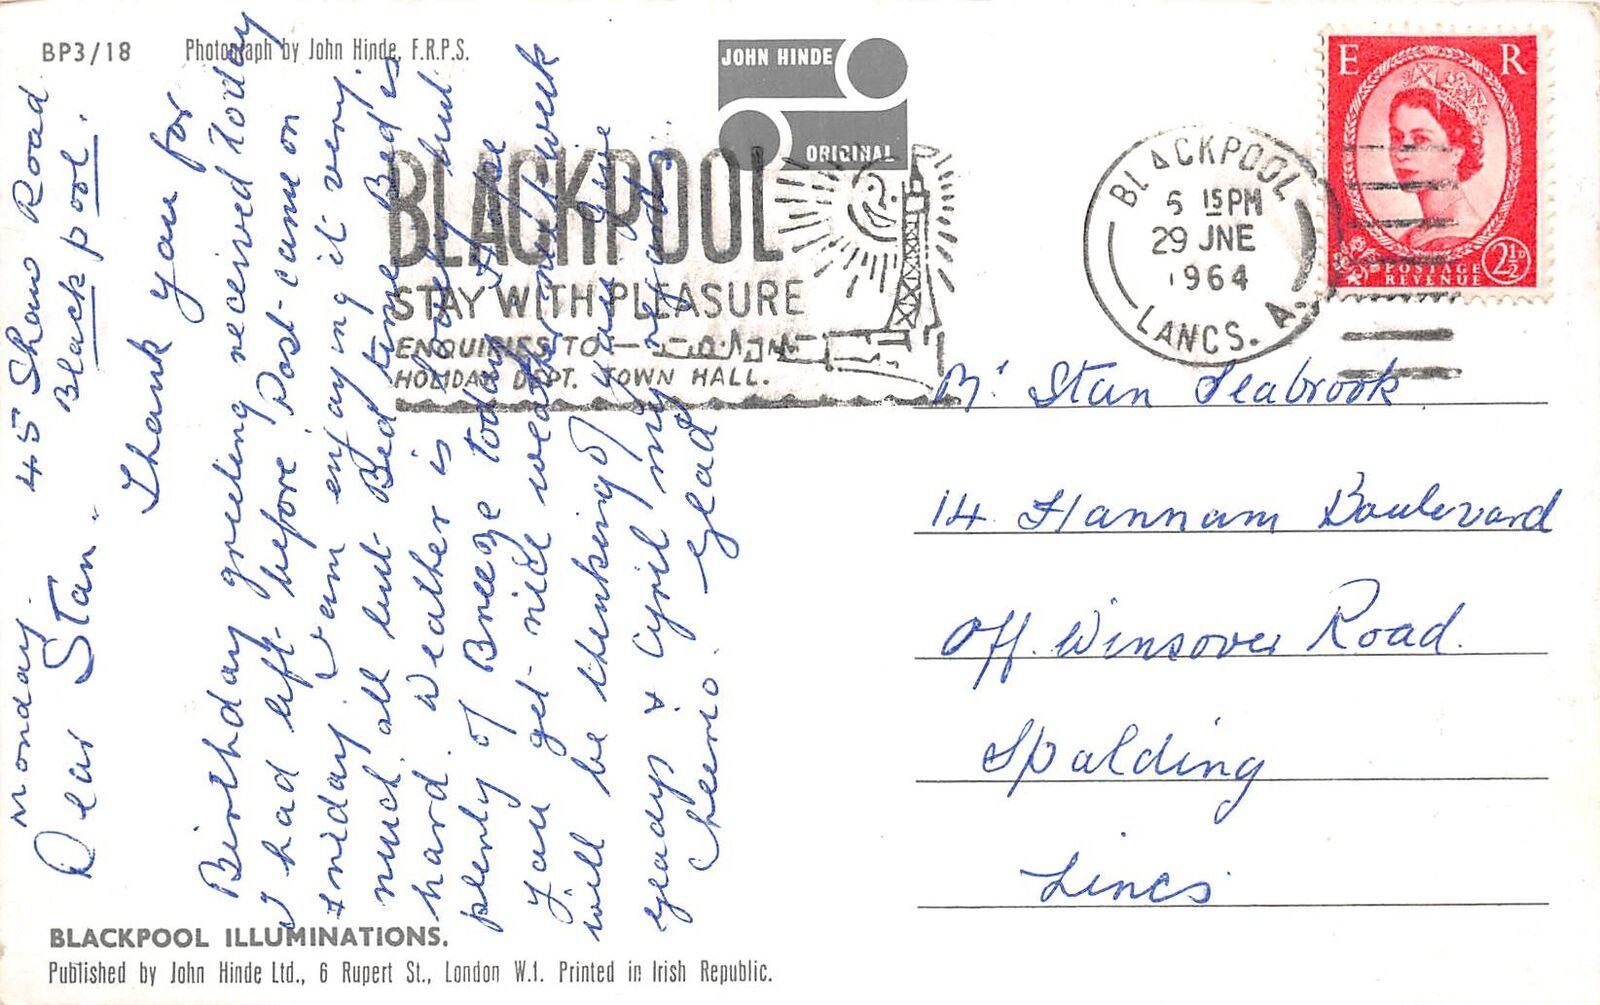 BP3/18 Photograph by John Hinde, F.R.P.S.
JOHN HINDE
ORIGINAL
BLACKPOOL
STAY WITH PLEASURE
ENQUIRIES TO
HOLIDAY DEPT. TOWN HALL.
BLACKPOOL
5 15 PM
29 JNE
1964
LANCS. A.
E R
POSTAGE
REVENUE
2½D
Monday. 45 Shaw Road
Blackpool.
Dear Stan.
Thank you for
Birthday greeting received today
I had left before Post came on
Friday. I am enjoying it very
much all but Bed time Bed is
hard. weather is lovely but
plenty of Breeze today. Hope
you get nice weather next week
will be thinking of you. Give
Gladys & Cyril my regards.
Cheerio. Glad
Mr Stan Seabrook
14 Hannam Boulevard
Off. Winsover Road.
Spalding
Lincs
BLACKPOOL ILLUMINATIONS.
Published by John Hinde Ltd., 6 Rupert St., London W.1. Printed in Irish Republic.